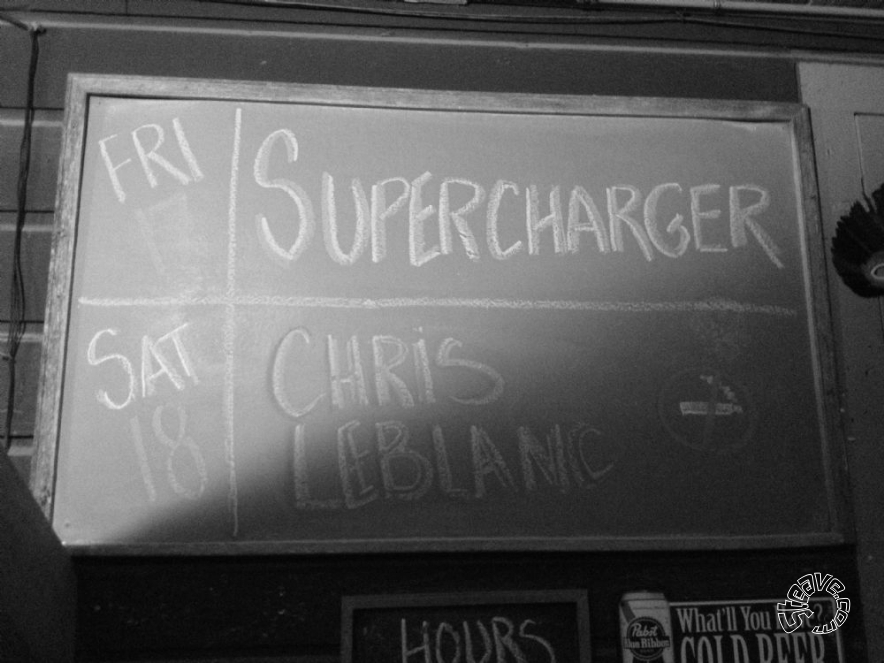 FRI
SUPERCHARGER
SAT
18
CHRIS
LEBLANC
HOURS
Pabst
Blue Ribbon
What'll You
COLD BEER
Steave.com